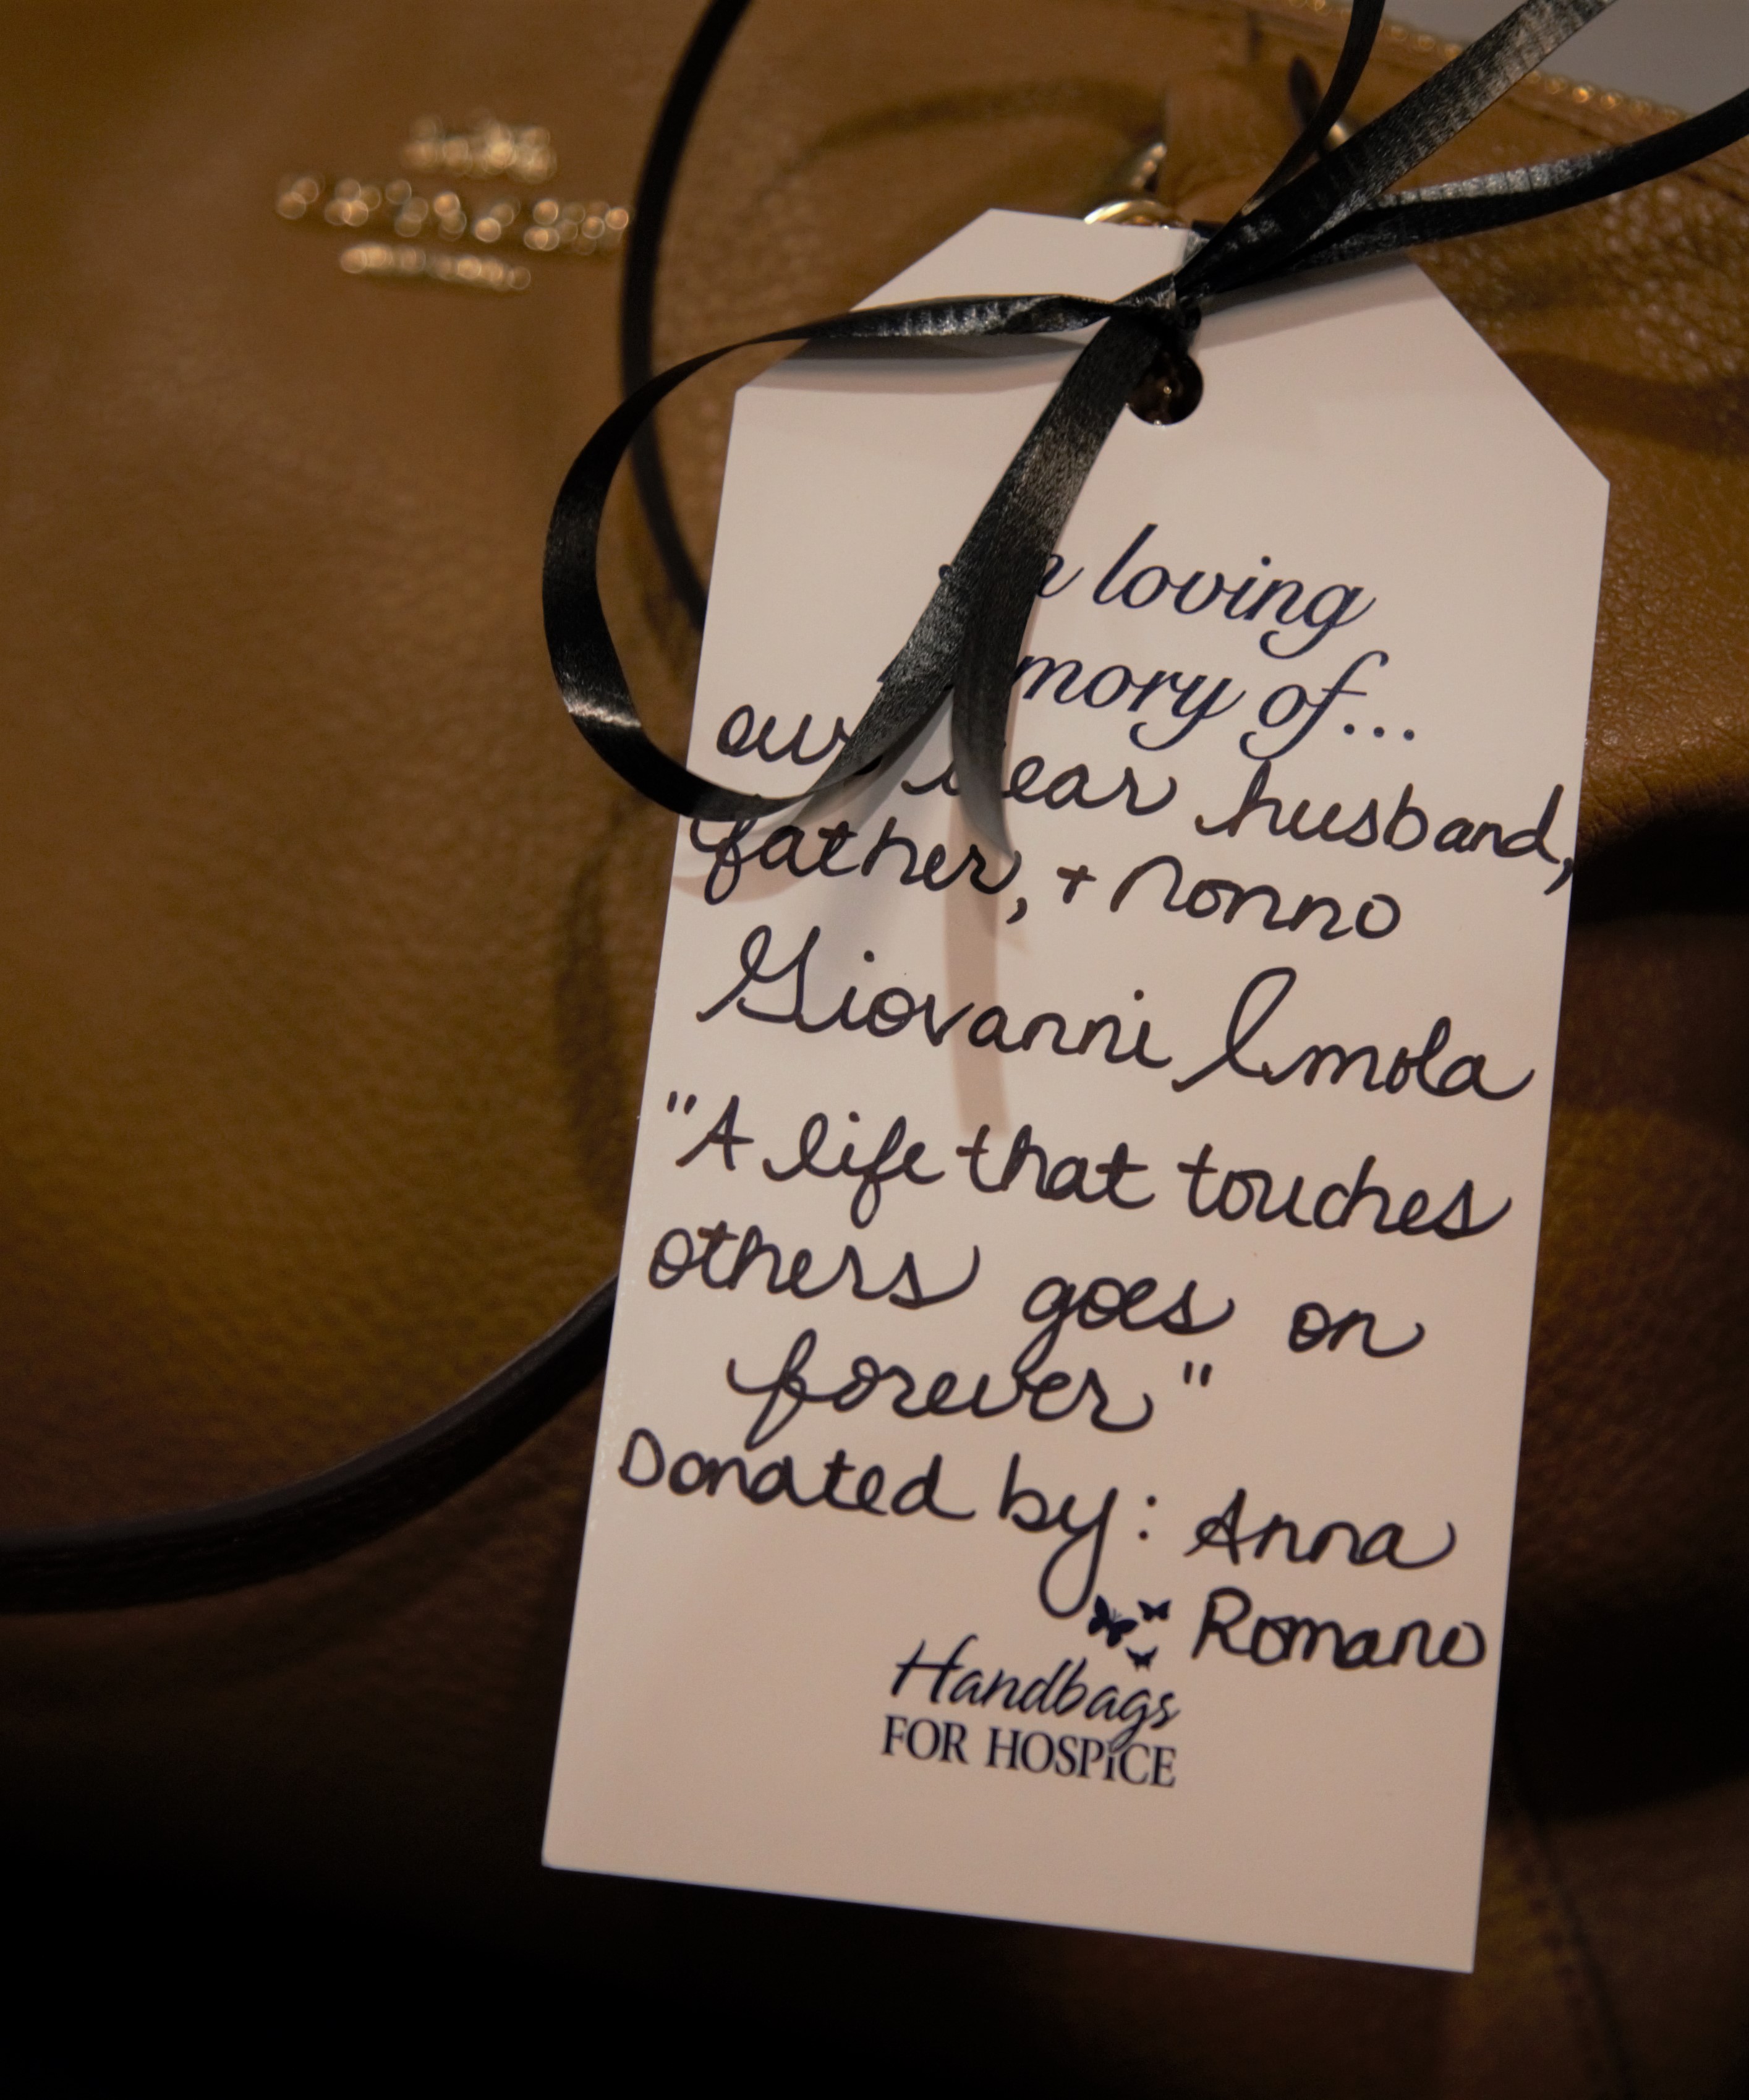 In loving
memory of...
our dear husband,
father, + Nonno
Giovanni Imola
"A life that touches
others goes on
forever"
Donated by: Anna
Romano
Handbags
FOR HOSPiCE